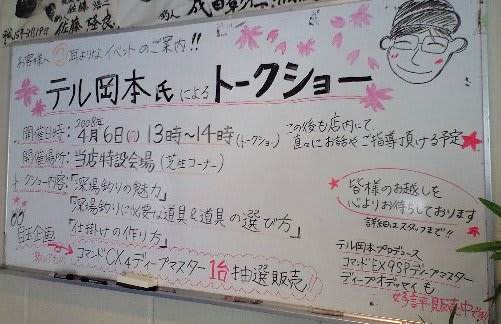 佐藤 浩二
平成15年2月19日 佐藤 隆良
お客様へ 耳よりな イベントのご案内!!
テル岡本氏によるトークショー
開催日時:2008年 4月6日(日) 13時~14時(トークショー)
この後も店内にて、
直々にお話やご指導頂ける予定
開催場所:当店特設会場(芝生コーナー)
トークショー内容:「深場釣りの魅力」
「深場釣りに必要な道具&道具の選び方」
「仕掛けの作り方」
皆様のお越しを
心よりお待ちしております
詳細はスタッフまで!!
目玉企画
コマンドCX4ディープマスター 1台 抽選販売!!
テル岡本プロデュース
コマンドEX9SPディープマスター
ディープオデッセイ も
好評販売中です!!